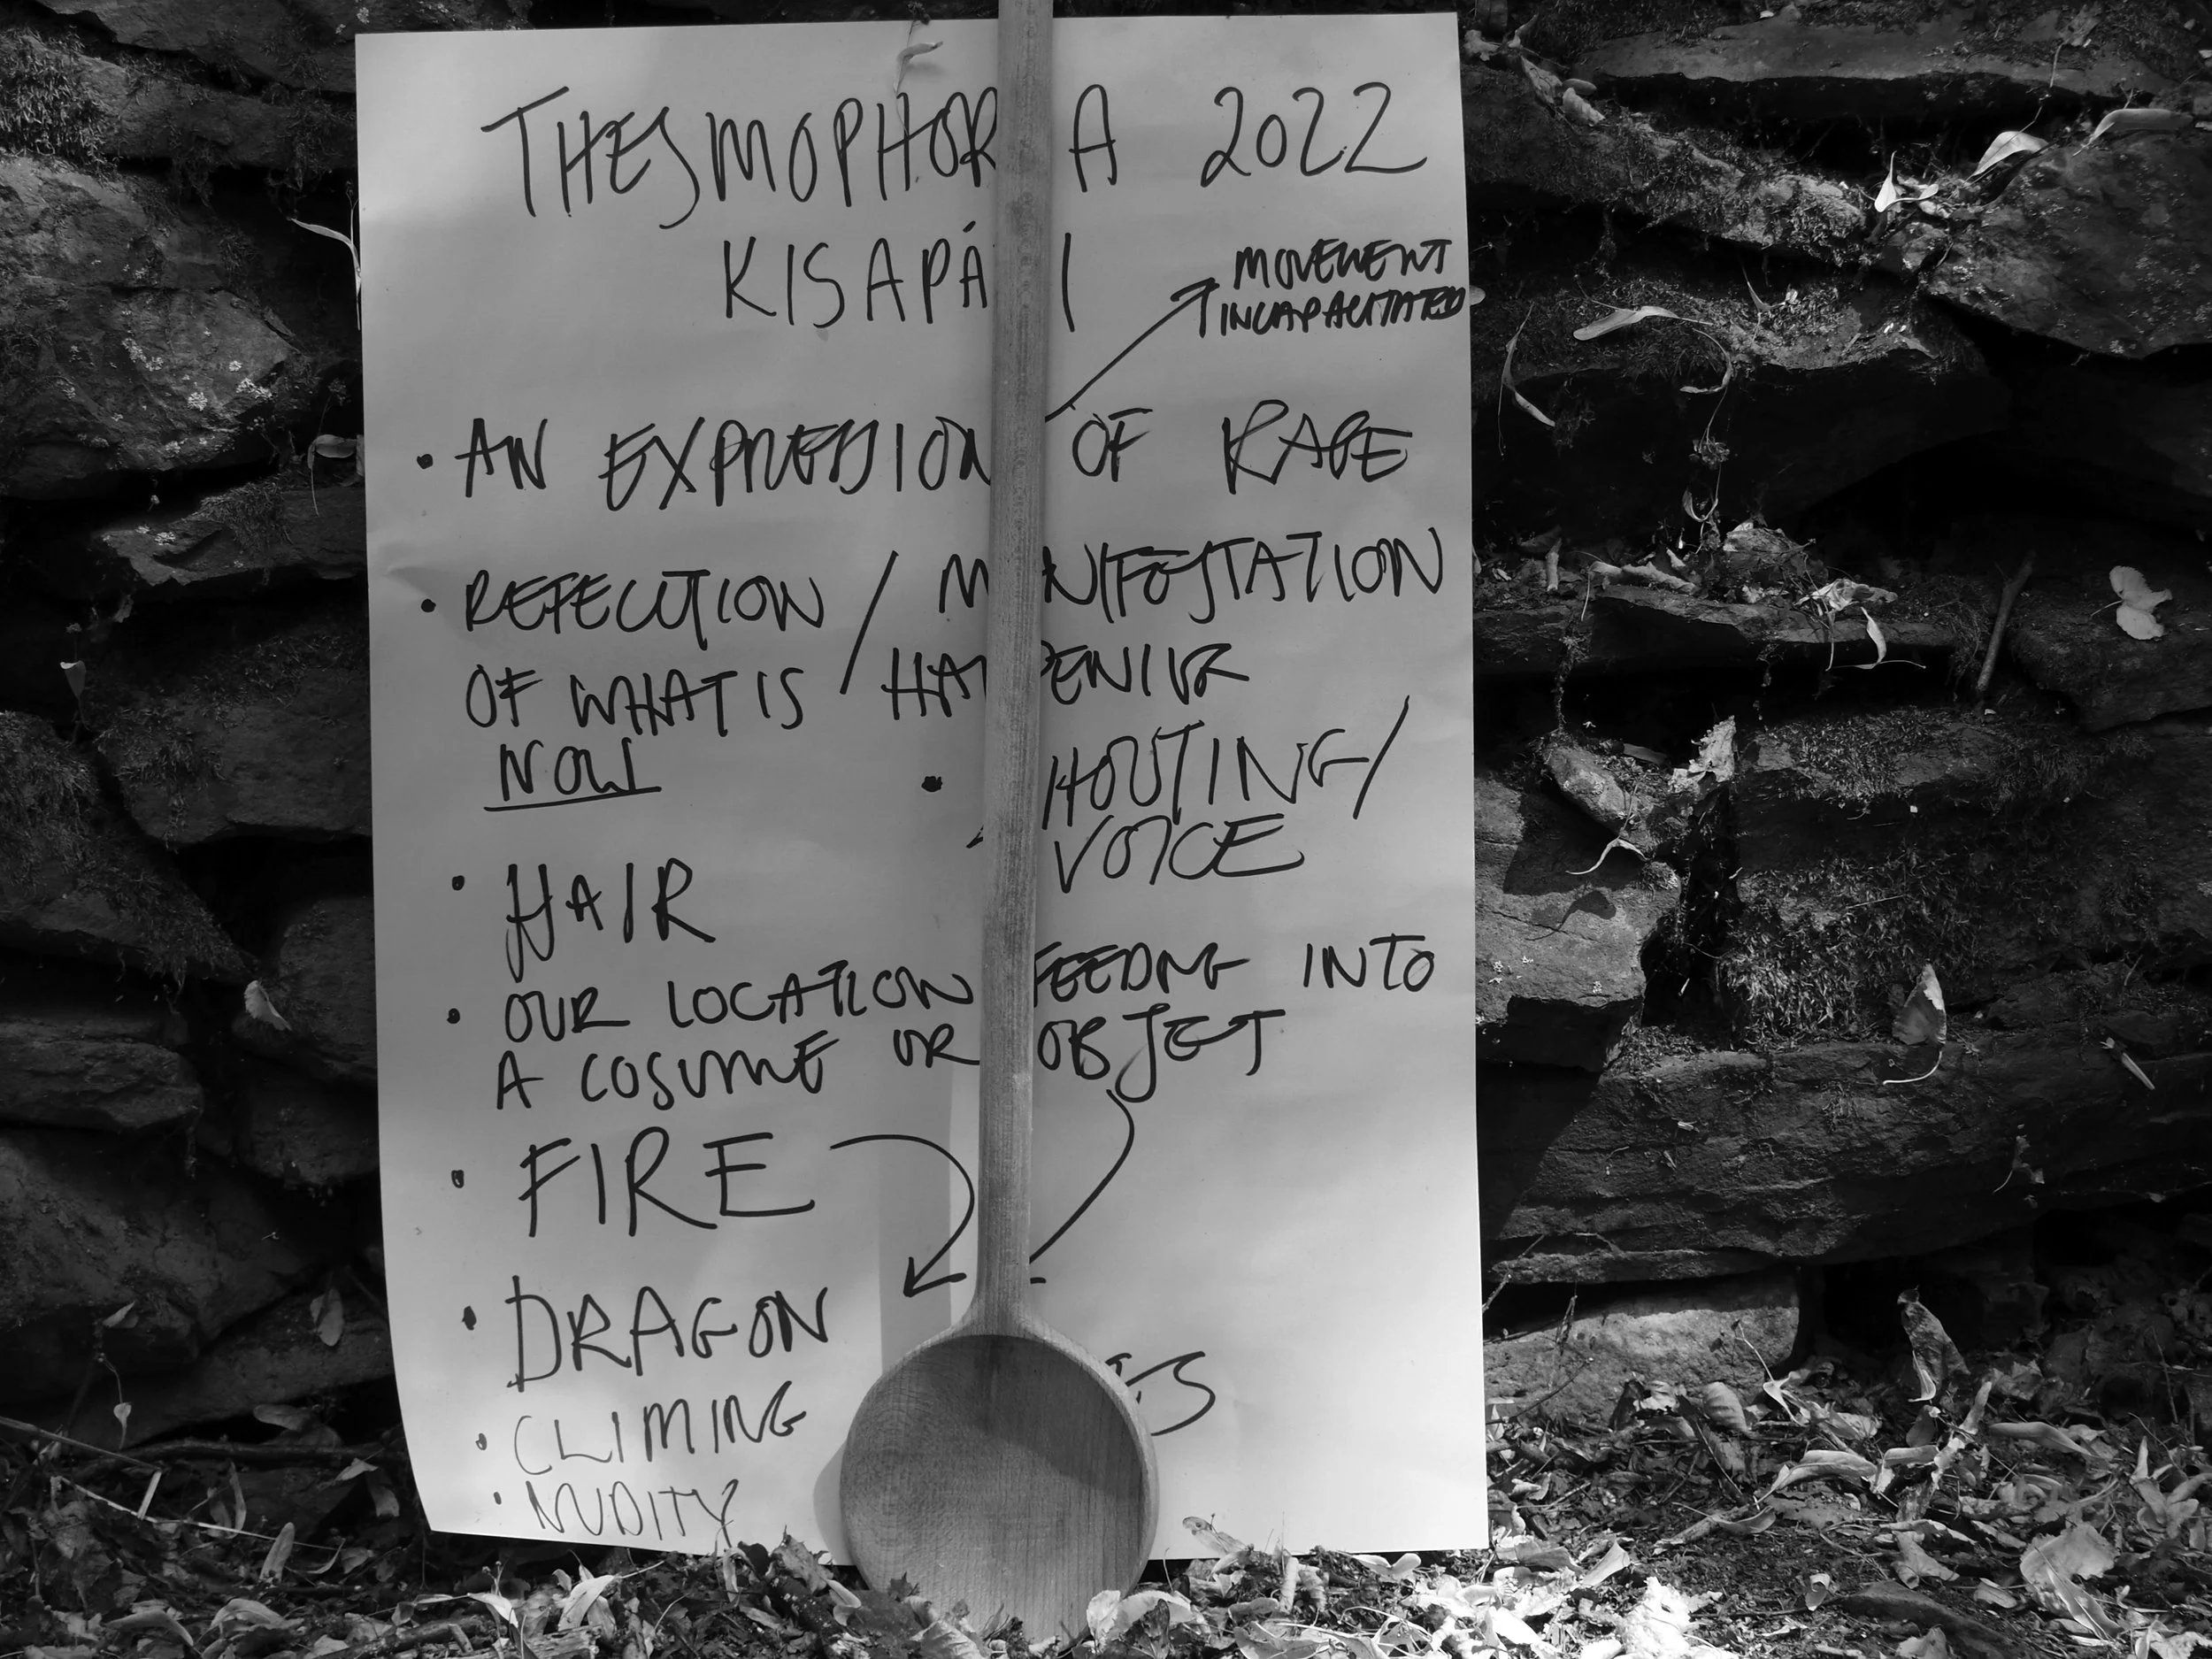 THESMOPHOR A 2022
KISAPÁ I
MOVEMENT
INCAPACITATED
• AN EXPRESSION OF RAGE
• REFELCTION / M NIFESTATION
OF WHAT IS / HAPPENING
NOW
• SHOUTING/
VOICE
• HAIR
• OUR LOCATION FEEDING INTO
A COSUME OR OBJECT
• FIRE
• DRAGON
• CLIMING
• NUDITY